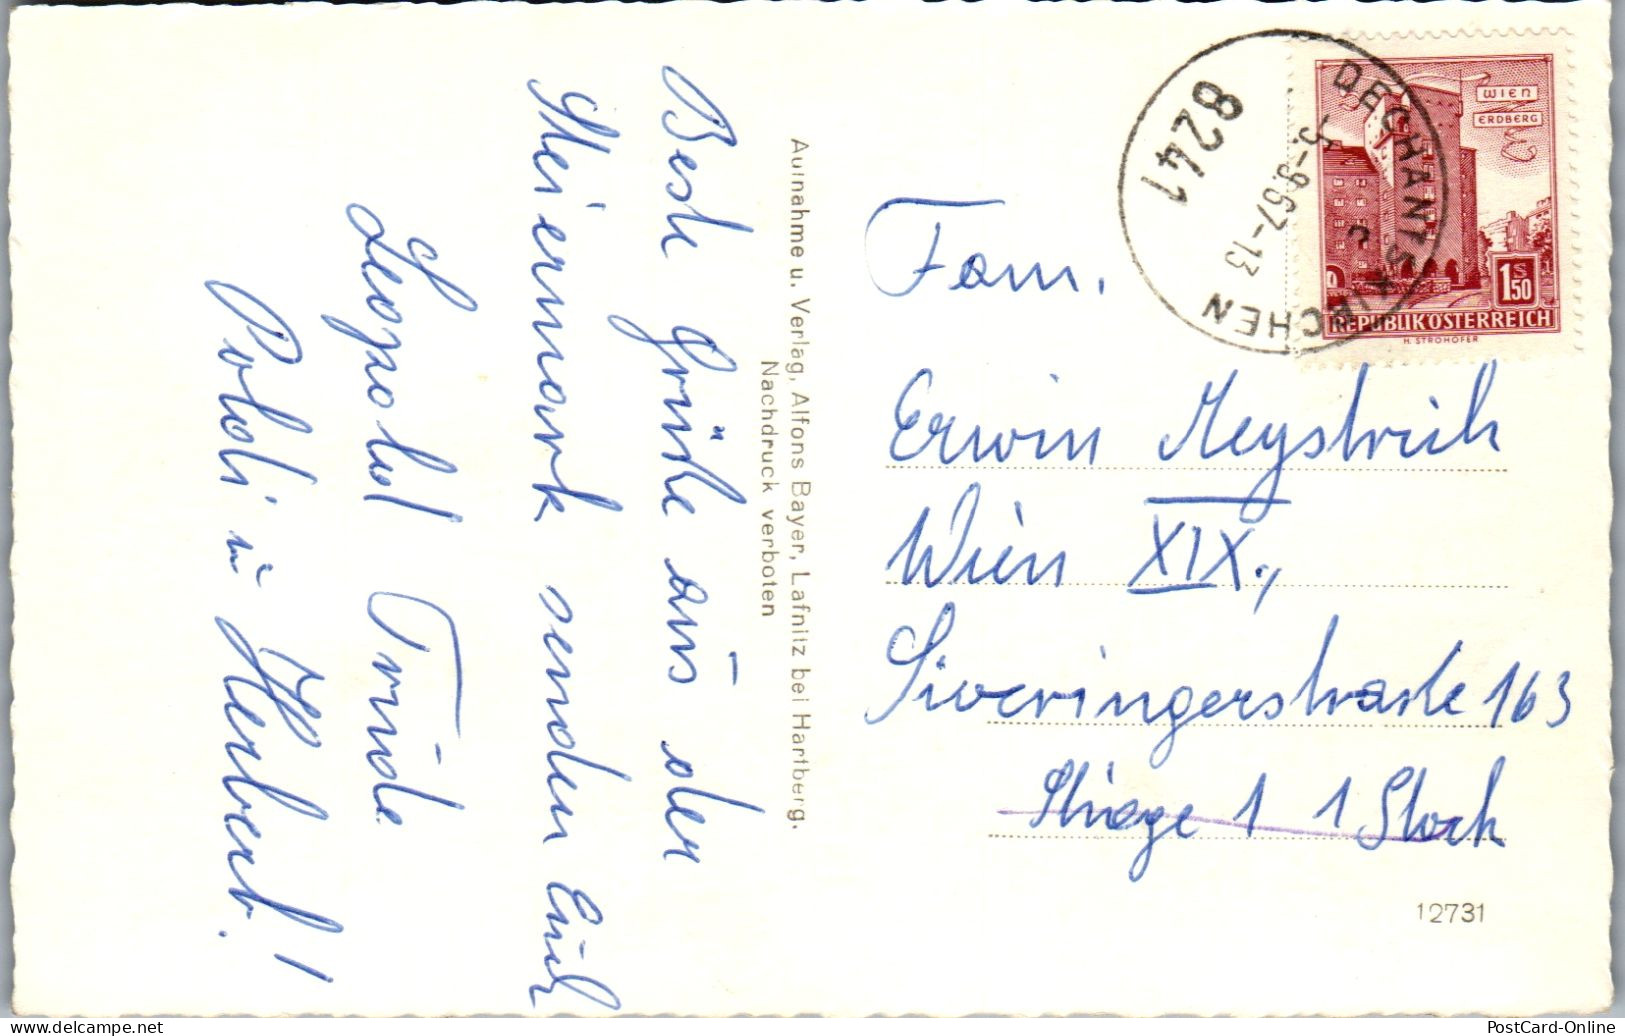 Beste Grüße aus der
Steiermark senden Euch
Leopold Trude
Poldi u Herbert!
Aufnahme u. Verlag, Alfons Bayer, Lafnitz bei Hartberg.
Nachdruck verboten
8241
DECHANTSKIRCHEN
5.-9.67-13
WIEN
ERDBERG
1 S 50
REPUBLIK ÖSTERREICH
H. STROHOFER
Fam.
Erwin Meystrich
Wien XIX.,
Sieveringerstraße 163
Stiege 1 1 Stock
12731
PostCard-Online